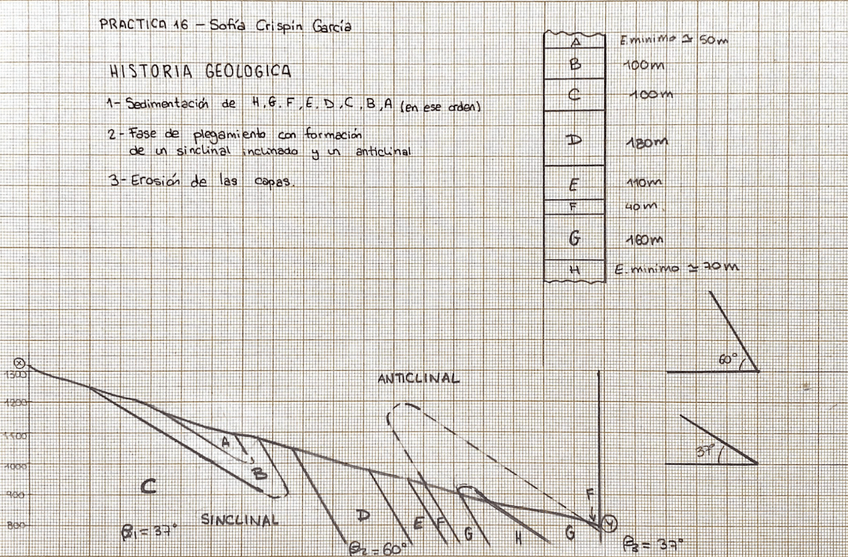 PRACTICA 16 - Sofía Crispín García
HISTORIA GEOLOGICA
1- Sedimentación de H, G, F, E, D, C, B, A (en ese orden)
2- Fase de plegamiento con formación
de un sinclinal inclinado y un anticlinal
3- Erosión de las capas.
A E.minimo ≃ 50m
B 100m
C 100m
D 180m
E 110m
F 40m.
G 160m
H E. minimo ≃ 70m
60°
37°
X
1300
1200
1100
1000
900
800
ANTICLINAL
A
B
C
SINCLINAL
D
E
F
G
H
G
F
Y
β1 = 37°
β2 = 60°
β3 = 37°